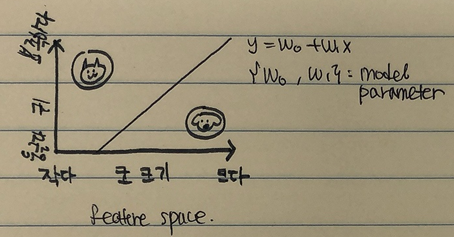 뾰족하다
귀
둥글다
작다 코 크기 크다
y = w₀ + w₁x
{w₀, w₁} = model
parameter
feature space.